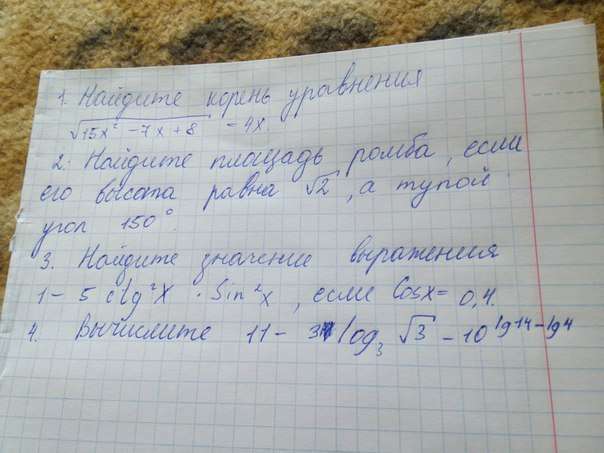 1. Найдите корень уравнения
√15x² - 7x + 8 - 4x.
2. Найдите площадь ромба, если
его высота равна √2, а тупой
угол 150°.
3. Найдите значение выражения
1 - 5 ctg²x · Sin²x, если Cosx = 0,4.
4. Вычислите 11 - 3 log₃ √3 - 10^lg14-lg4